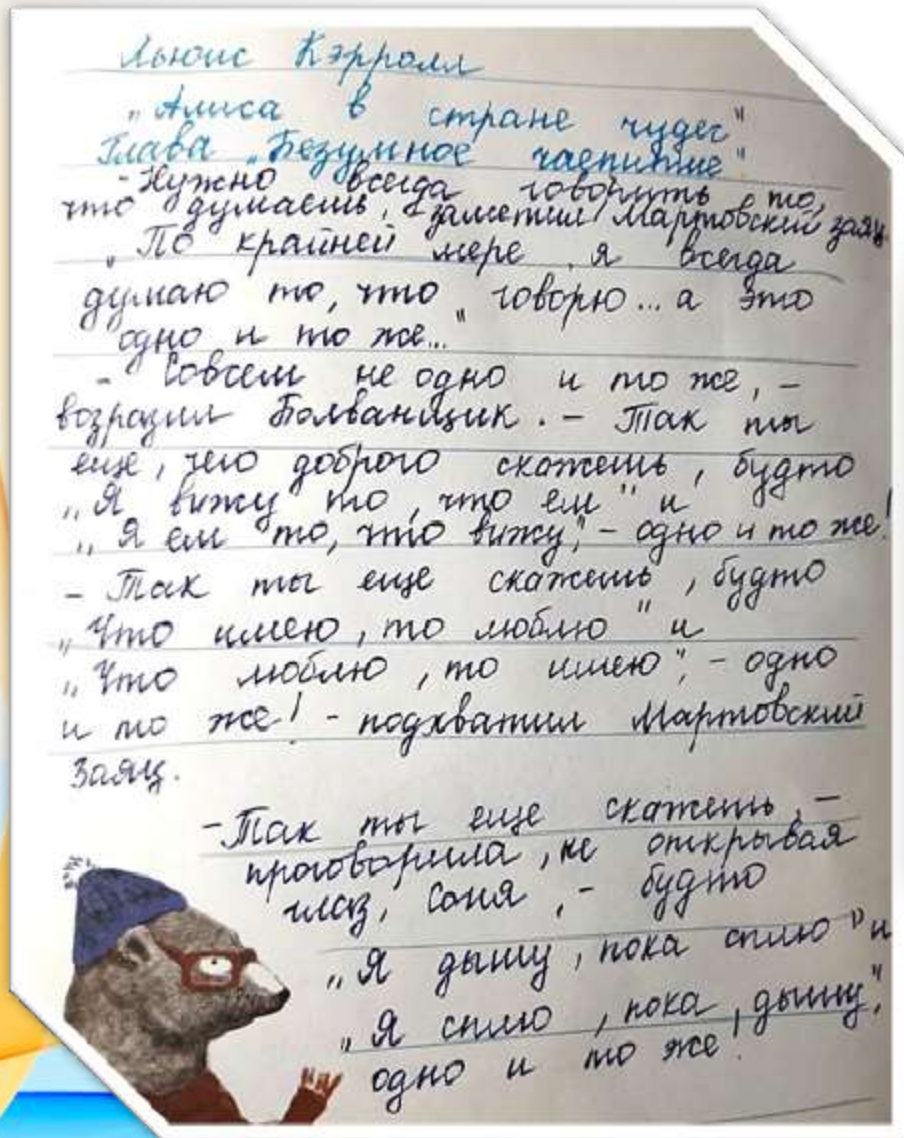 Льюис Кэрролл
„Алиса в стране чудес"
Глава „Безумное чаепитие"
- Нужно всегда говорить то,
что думаешь, - заметил Мартовский заяц.
„По крайней мере я всегда
думаю то, что говорю... а это
одно и то же..."
- Совсем не одно и то же, -
возразил Болванщик. - Так ты
еще, чего доброго скажешь, будто
„Я вижу то, что ем" и
„Я ем то, что вижу", - одно и то же!
- Так ты еще скажешь, будто
„Что имею, то люблю" и
„Что люблю, то имею", - одно
и то же! - подхватил Мартовский
Заяц.
- Так ты еще скажешь, -
проговорила, не открывая
глаз, Соня, - будто
„Я дышу, пока сплю" и
„Я сплю, пока дышу",
одно и то же!